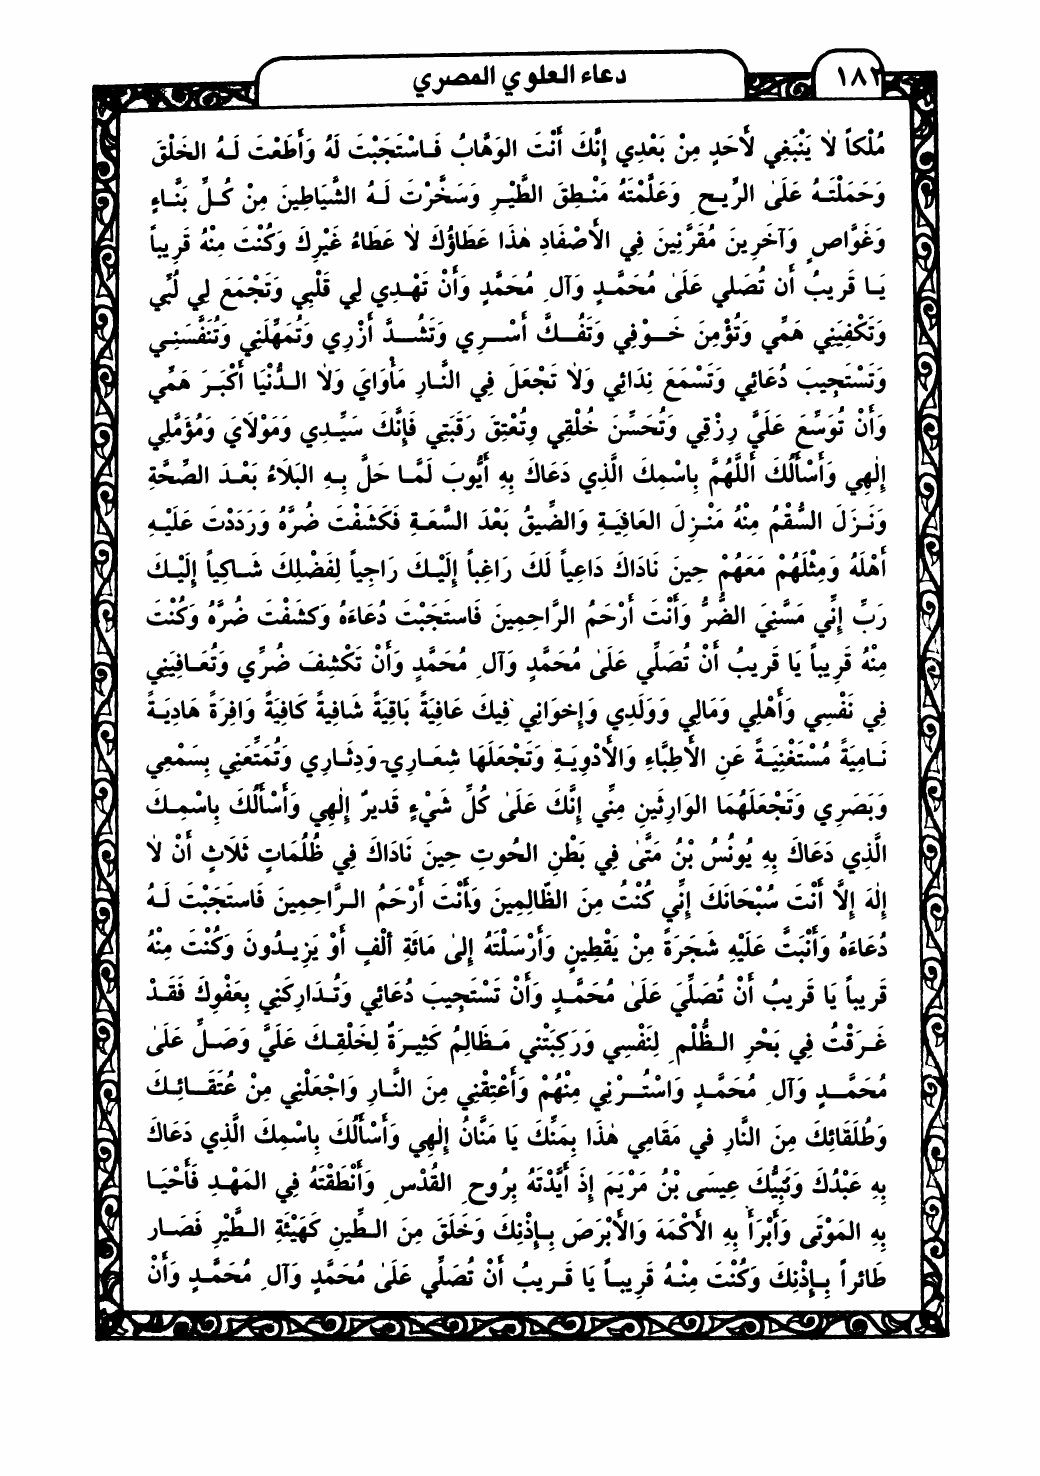 دعاء العلوي المصري
١٨٢
مُلْكاً لاٰ يَنْبَغِي لأَحَدٍ مِنْ بَعْدِي إِنَّكَ أَنْتَ الوَهَّابُ فَاسْتَجَبْتَ لَهُ وَأَطَعْتَ لَهُ الخَلْقَ
وَحَمَلْتَهُ عَلَىٰ الرِّيحِ وَعَلَّمْتَهُ مَنْطِقَ الطَّيْرِ وَسَخَّرْتَ لَهُ الشَّيَاطِينَ مِنْ كُلِّ بَنَّاءٍ
وَغَوَّاصٍ وَآخَرِينَ مُقَرَّنِينَ فِي الأَصْفَادِ هٰذَا عَطَاؤُكَ لاٰ عَطَاءُ غَيْرِكَ وَكُنْتَ مِنْهُ قَرِيباً
يَا قَرِيبُ أَن تُصَلي عَلَىٰ مُحَمَّدٍ وَآلِ مُحَمَّدٍ وَأَنْ تَهْدِي لِي قَلْبِي وَتَجْمَعَ لِي لُبِّي
وَتَكْفِيَنِي هَمِّي وَتُؤْمِنَ خَوْفِي وَتَفُكَّ أَسْرِي وَتَشُدَّ أَزْرِي وَتُمَهِّلَنِي وَتُنَفِّسَنِي
وَتَسْتَجِيبَ دُعَائِي وَتَسْمَعَ نِدَائِي وَلاٰ تَجْعَلَ فِي النَّارِ مَأْوَايَ وَلاٰ الدُّنْيَا أَكْبَرَ هَمِّي
وَأَنْ تُوَسِّعَ عَلَيَّ رِزْقِي وَتُحَسِّنَ خُلْقِي وِتُعْتِقَ رَقَبَتِي فَإِنَّكَ سَيِّدِي وَمَوْلاَيَ وَمُؤَمَّلِي
إِلٰهِي وَأَسْأَلُكَ أَللَّهُمَّ بِاسْمِكَ الَّذِي دَعَاكَ بِهِ أَيُّوبَ لَمَّا حَلَّ بِهِ البَلاَءُ بَعْدَ الصِّحَّةِ
وَنَزَلَ السُّقْمُ مِنْهُ مَنْزِلَ العَافِيَةِ وَالضِّيقُ بَعْدَ السَّعَةِ فَكَشَفْتَ ضُرَّهُ وَرَدَدْتَ عَلَيْهِ
أَهْلَهُ وَمِثْلَهُمْ مَعَهُمْ حِينَ نَادَاكَ دَاعِياً لَكَ رَاغِباً إِلَيْكَ رَاجِياً لِفَضْلِكَ شَاكِياً إِلَيْكَ
رَبِّ إِنِّي مَسَّنِيَ الضُّرُّ وَأَنْتَ أَرْحَمُ الرَّاحِمِينَ فَاستَجَبْتَ دُعَاءَهُ وَكشَفْتَ ضُرَّهُ وَكُنْتَ
مِنْهُ قَرِيباً يَا قَرِيبُ أَنْ تُصَلِّي عَلَىٰ مُحَمَّدٍ وَآلِ مُحَمَّدٍ وَأَنْ تَكْشِفَ ضُرِّي وَتُعَافِيَنِي
فِي نَفْسِي وَأَهْلِي وَمَالِي وَوَلَدِي وَإِخوَانِي فِيكَ عَافِيَةً بَاقِيَةً شَافِيَةً كَافِيَةً وَافِرَةً هَادِيَةً
نَامِيَةً مُسْتَغْنِيَةً عَنِ الأَطِبَّاءِ وَالأَدْوِيَةِ وَتَجْعَلَهَا شِعَارِي وَدِثَارِي وَتُمَتِّعَنِي بِسَمْعِي
وَبَصَرِي وَتَجْعَلَهُمَا الوَارِثَينِ مِنِّي إِنَّكَ عَلَىٰ كُلِّ شَيْءٍ قَديرٌ إِلٰهِي وَأَسْأَلُكَ بِاسْمِكَ
الَّذِي دَعَاكَ بِهِ يُونُسُ بْنُ مَتَّىٰ فِي بَطْنِ الحُوتِ حِينَ نَادَاكَ فِي ظُلُمَاتٍ ثَلاَثٍ أَنْ لاٰ
إِلٰهَ إِلاَّ أَنْتَ سُبْحَانَكَ إِنِّي كُنْتُ مِنَ الظّالِمِينَ وَأَنْتَ أَرْحَمُ الرَّاحِمِينَ فَاستَجَبْتَ لَهُ
دُعَاءَهُ وَأَنْبَتَّ عَلَيْهِ شَجَرَةً مِنْ يَقْطِينٍ وَأَرْسَلْتَهُ إِلىٰ مَائَةِ أَلْفٍ أَوْ يَزِيدُونَ وَكُنْتَ مِنْهُ
قَرِيباً يَا قَرِيبُ أَنْ تُصَلِّيَ عَلَىٰ مُحَمَّدٍ وَأَنْ تَسْتَجِيبَ دُعَائِي وَتُدَارِكَنِي بِعَفْوِكَ فَقَدْ
غَرَقْتُ فِي بَحْرِ الظُّلْمِ لِنَفْسِي وَرَكِبَتْنِي مَظَالِمُ كَثِيرَةٌ لِخَلْقِكَ عَلَيَّ وَصَلِّ عَلَىٰ
مُحَمَّدٍ وَآلِ مُحَمَّدٍ وَاسْتُرْنِي مِنْهُمْ وَأَعْتِقْنِي مِنَ النَّارِ وَاجْعَلْنِي مِنْ عُتَقَائِكَ
وَطُلَقَائِكَ مِنَ النَّارِ في مَقَامِي هٰذَا بِمَنِّكَ يَا مَنَّانُ إِلٰهِي وَأَسْأَلُكَ بِاسْمِكَ الَّذِي دَعَاكَ
بِهِ عَبْدُكَ وَنَبِيُّكَ عِيسَى بْنُ مَرْيَمَ إِذَ أَيَّدْتَهُ بِرُوحِ القُدْسِ وَأَنْطَقْتَهُ فِي المَهْدِ فَأَحْيَا
بِهِ المَوْتَى وَأَبْرَأَ بِهِ الأَكْمَهَ وَالأَبْرَصَ بِإِذْنِكَ وَخَلَقَ مِنَ الطِّينِ كَهَيْئَةِ الطَّيْرِ فَصَار
طَائراً بِإِذْنِكَ وَكُنْتَ مِنْهُ قَرِيباً يَا قَرِيبُ أَنْ تُصَلِّي عَلَىٰ مُحَمَّدٍ وَآلِ مُحَمَّدٍ وَأَنْ